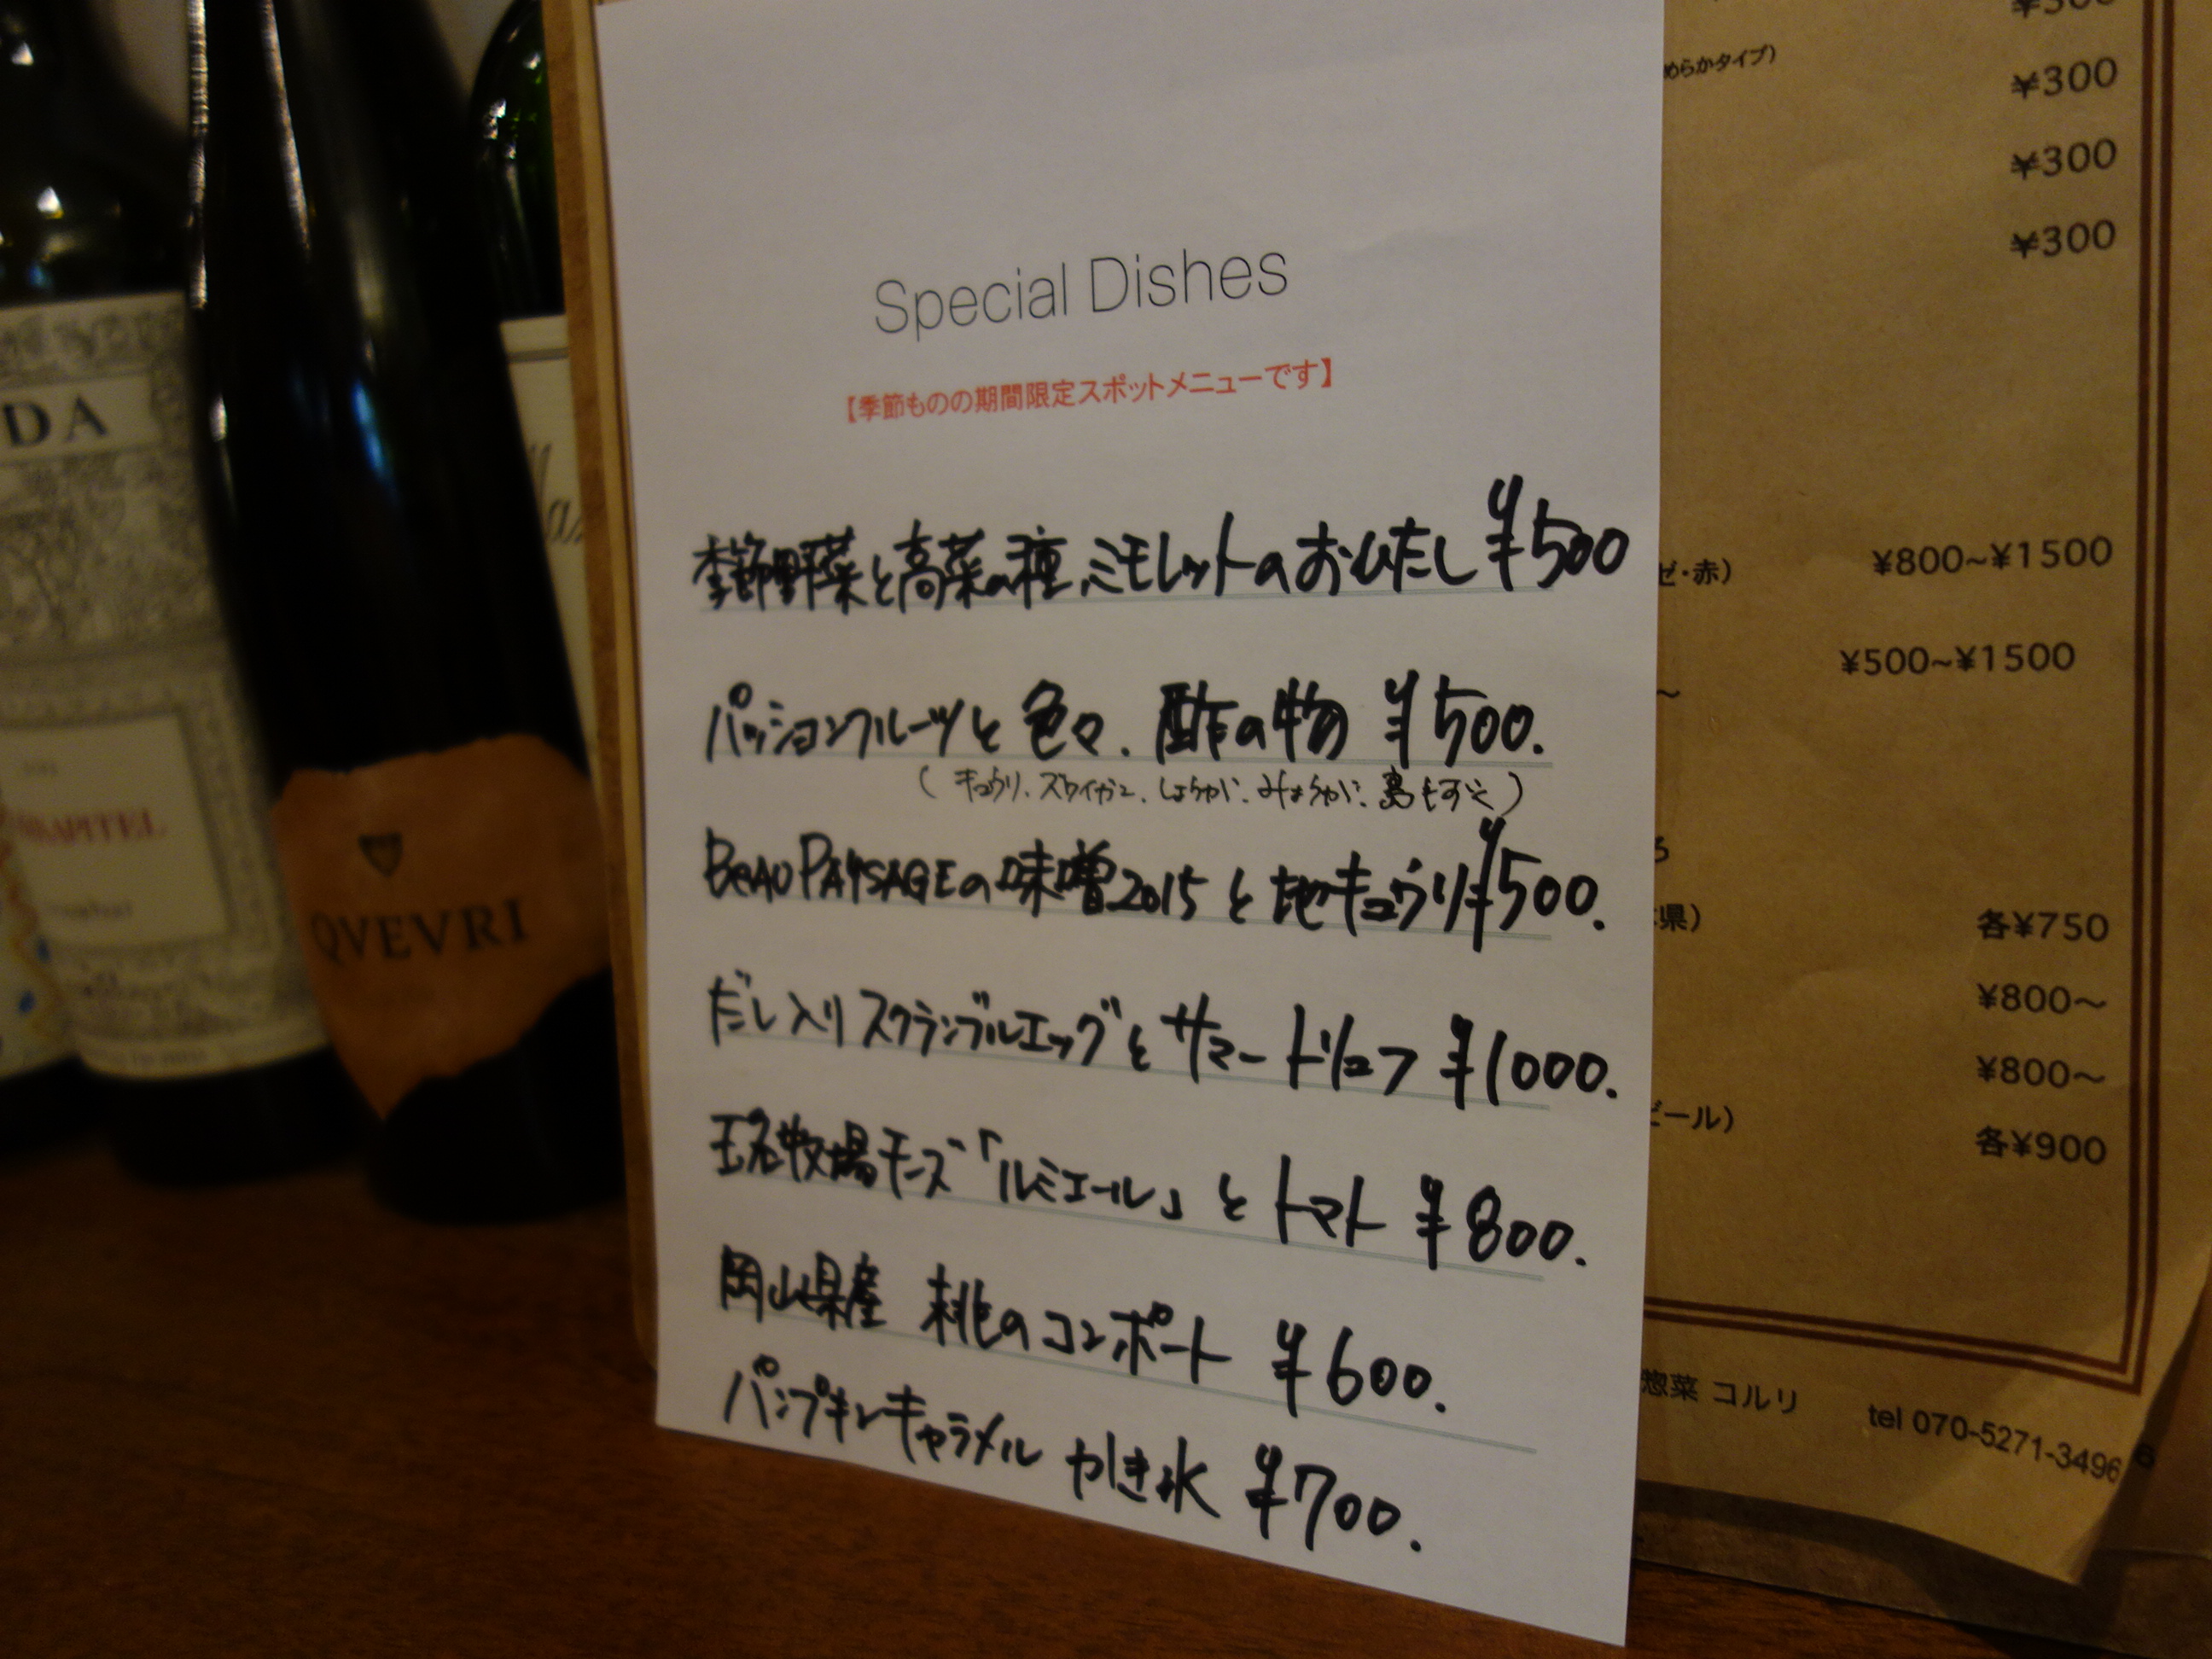 Special Dishes
【季節ものの期間限定スポットメニューです】
季節野菜と高菜の種、ミモレットのおひたし ¥500
パッションフルーツと色々、酢の物 ¥500.
(キュウリ、ズワイガニ、しょうが、みょうが、島もずく)
BEAU PAYSAGEの味噌2015と地キュウリ ¥500.
だし入りスクランブルエッグとサマートリュフ ¥1000.
玉名牧場チーズ「ルミエール」とトマト ¥800.
岡山県産 桃のコンポート ¥600.
パンプキンキャラメル かき氷 ¥700.
めらかタイプ)
¥300
¥300
¥300
¥300
ゼ・赤) ¥800~¥1500
~ ¥500~¥1500
県) 各¥750
¥800~
¥800~
ビール) 各¥900
惣菜 コルリ tel 070-5271-3496
DA
QVEVRI